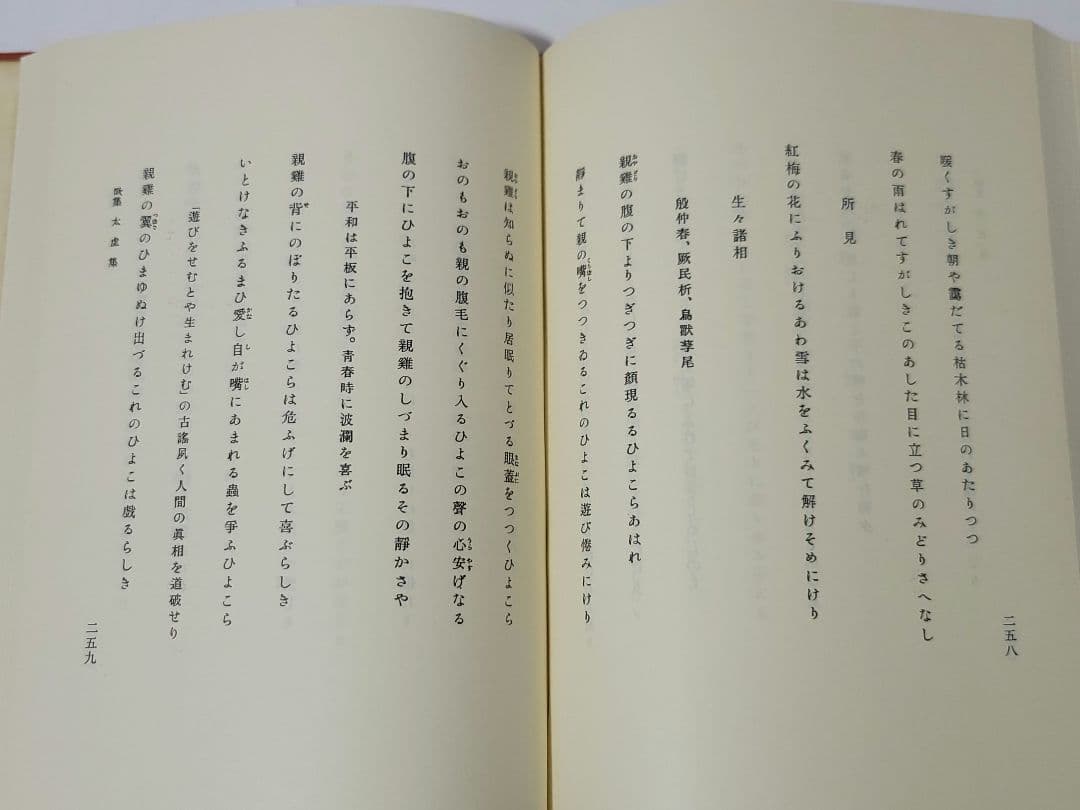 暖くすがしき朝や靄だてる枯木林に日のあたりつつ
春の雨はれてすがしきこのあした目に立つ草のみどりさへなし
所見
紅梅の花にふりおけるあわ雪は水をふくみて解けそめにけり
生々諸相
殷仲春、厥民析、鳥獸孳尾
親雞の腹の下よりつぎつぎに顏現るるひよこらあはれ
靜まりて親の嘴をつつきゐるこれのひよこは遊び倦みにけり
二五八
親雞は知らぬに似たり居眠りてとづる眼蓋をつつくひよこら
おのもおのも親の腹毛にくぐり入るひよこの聲の心安げなる
腹の下にひよこを抱きて親雞のしづまり眠るその靜かさや
平和は平板にあらず。靑春時に波瀾を喜ぶ
親雞の背にのぼりたるひよこらは危ふげにして喜ぶらしき
いとけなきふるまひ愛し自が嘴にあまれる蟲を爭ふひよこら
「遊びをせむとや生まれけむ」の古謠夙く人間の眞相を道破せり
親雞の翼のひまゆぬけ出づるこれのひよこは戲るらしき
歌集 太虛集
二五九